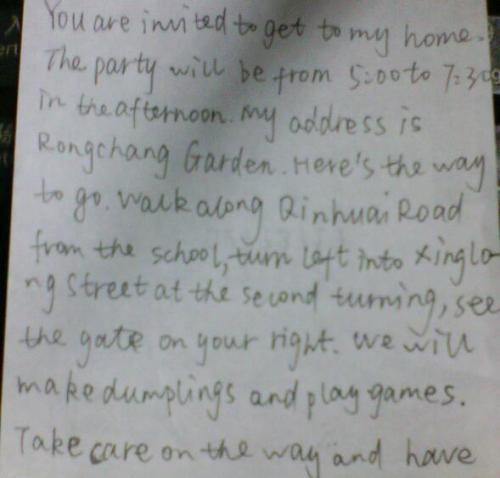 You are invited to get to my home.
The party will be from 5:00 to 7:30
in the afternoon. My address is
Rongchang Garden. Here's the way
to go. Walk along Qinhuai Road
from the school, turn left into Xinglo-
ng Street at the second turning, see
the gate on your right. We will
make dumplings and play games.
Take care on the way and have